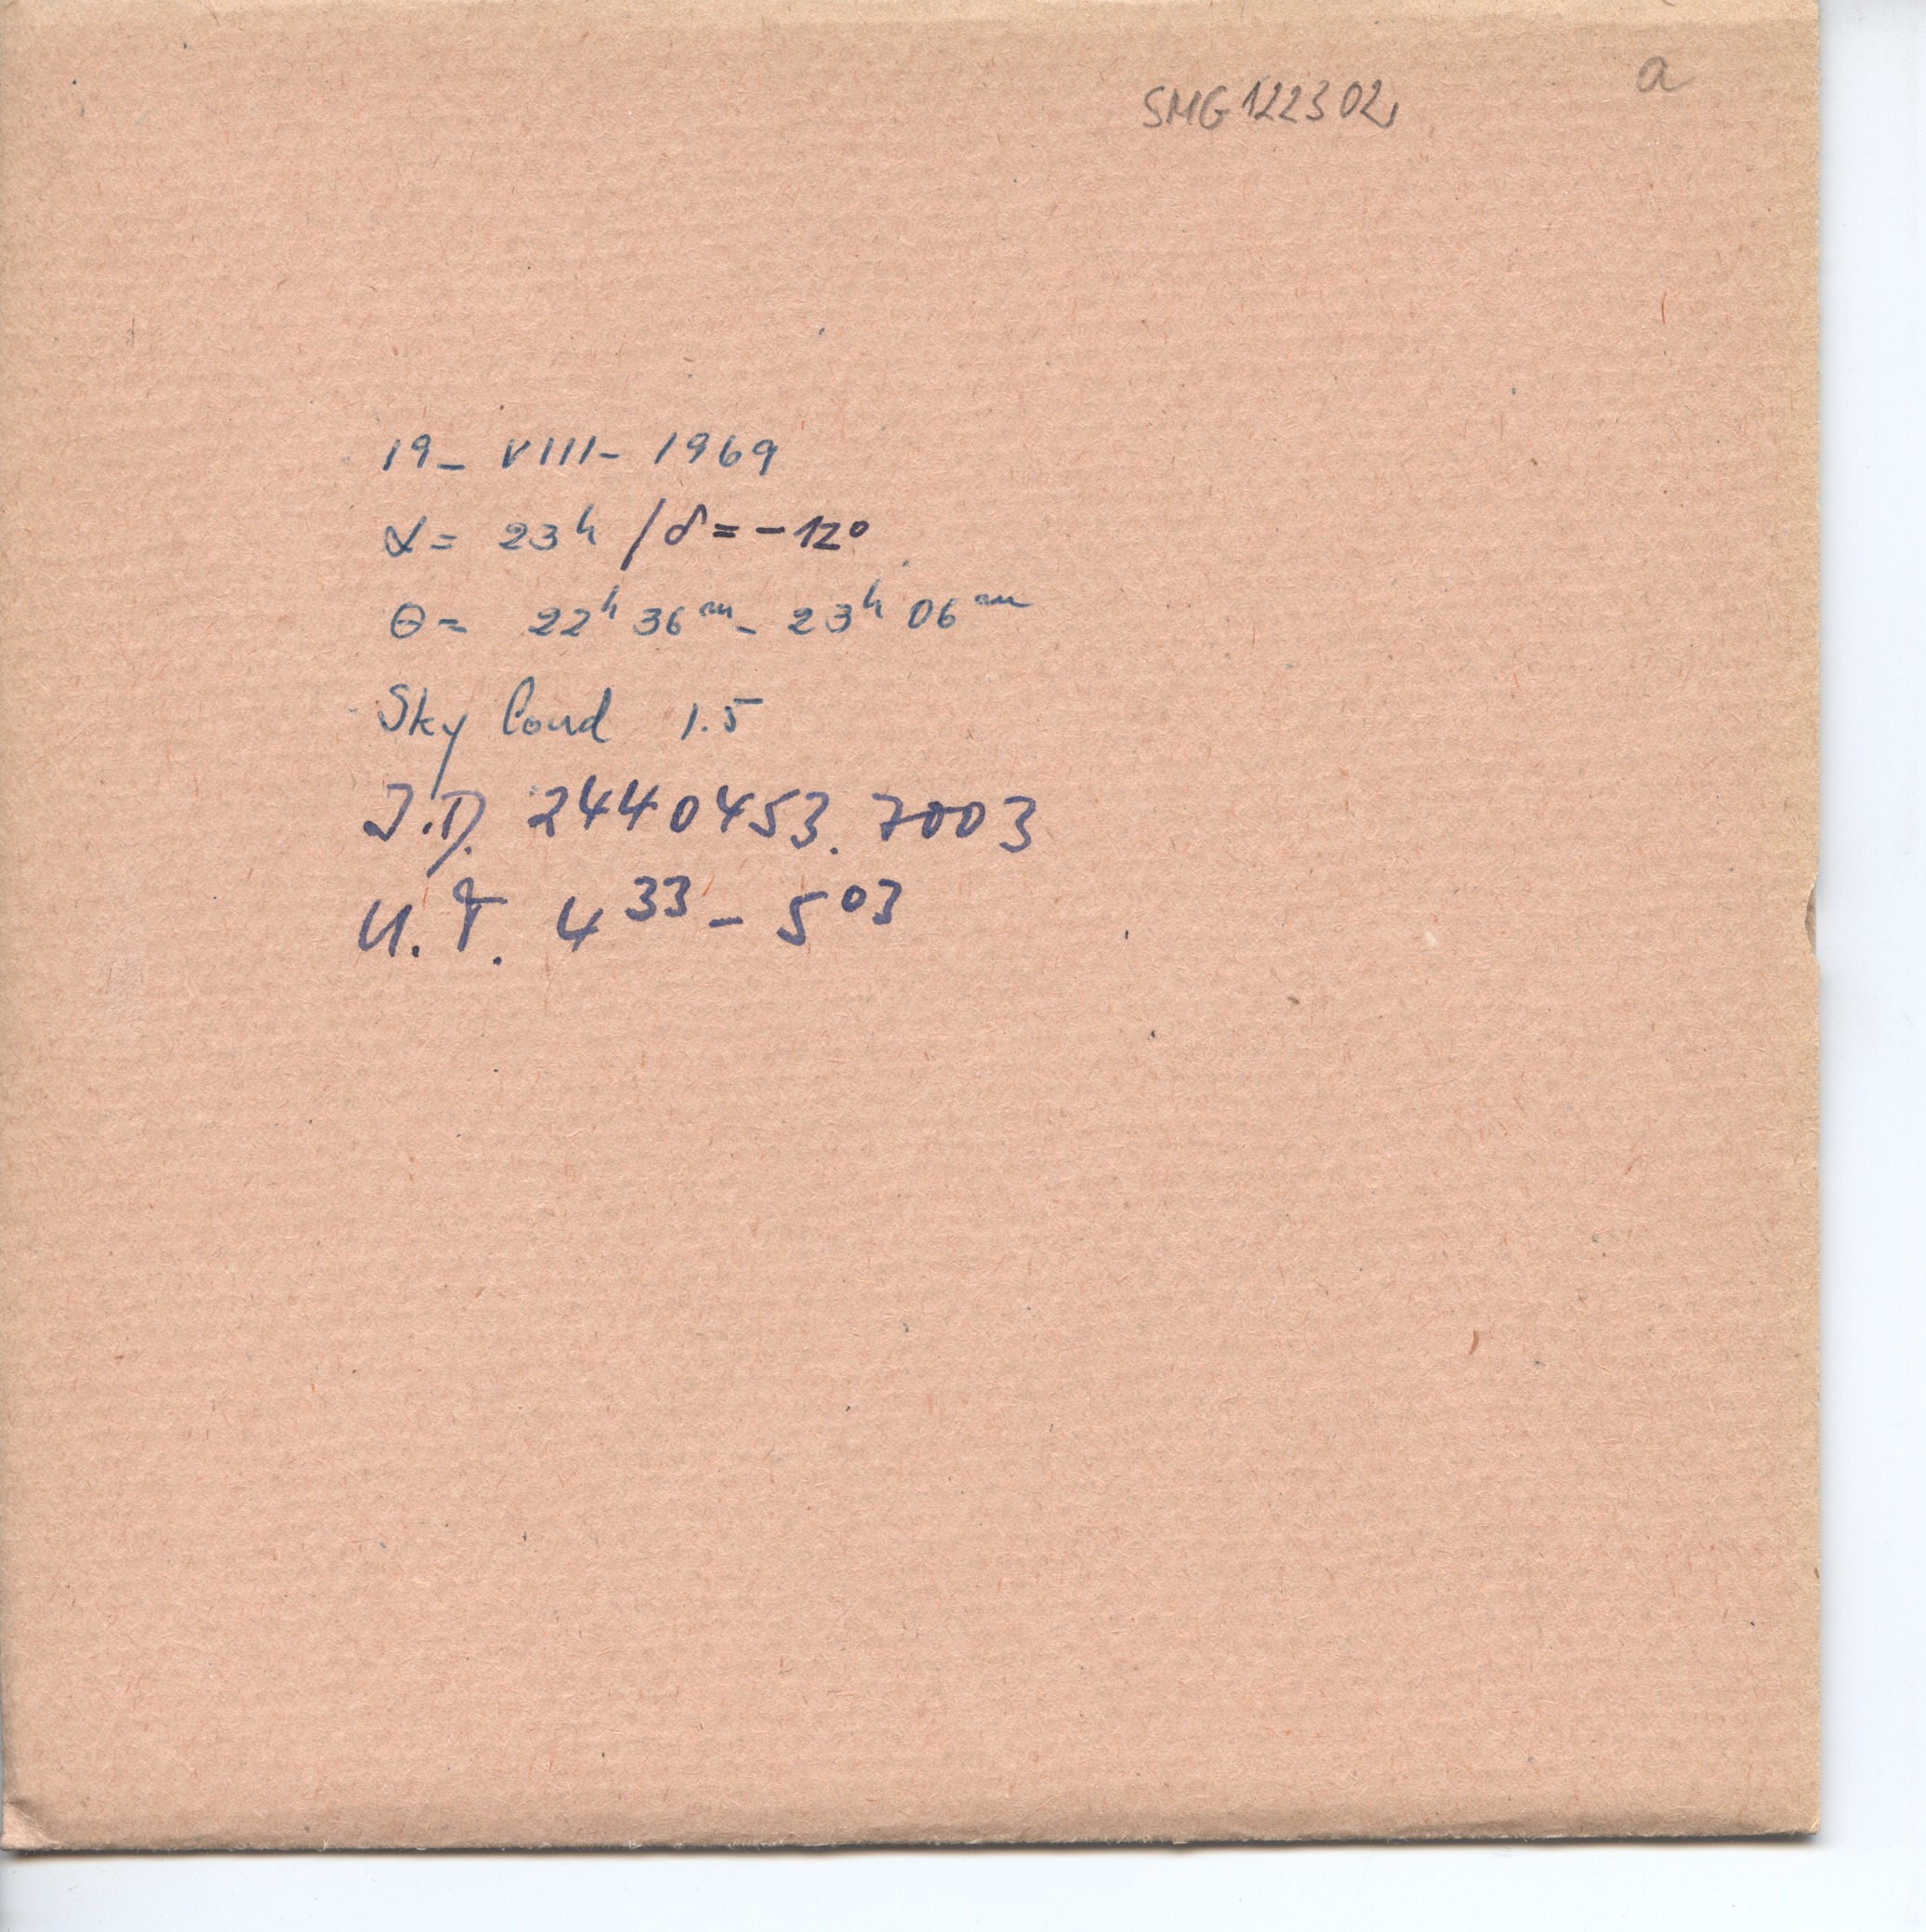 SMG 122302 a
19- VIII- 1969
α= 23ʰ / δ = -12°
θ= 22ʰ 36ᵐ - 23ʰ 06ᵐ
Sky Cond 1.5
J.D. 2440453.7003
U.T. 4³³ - 5⁰³